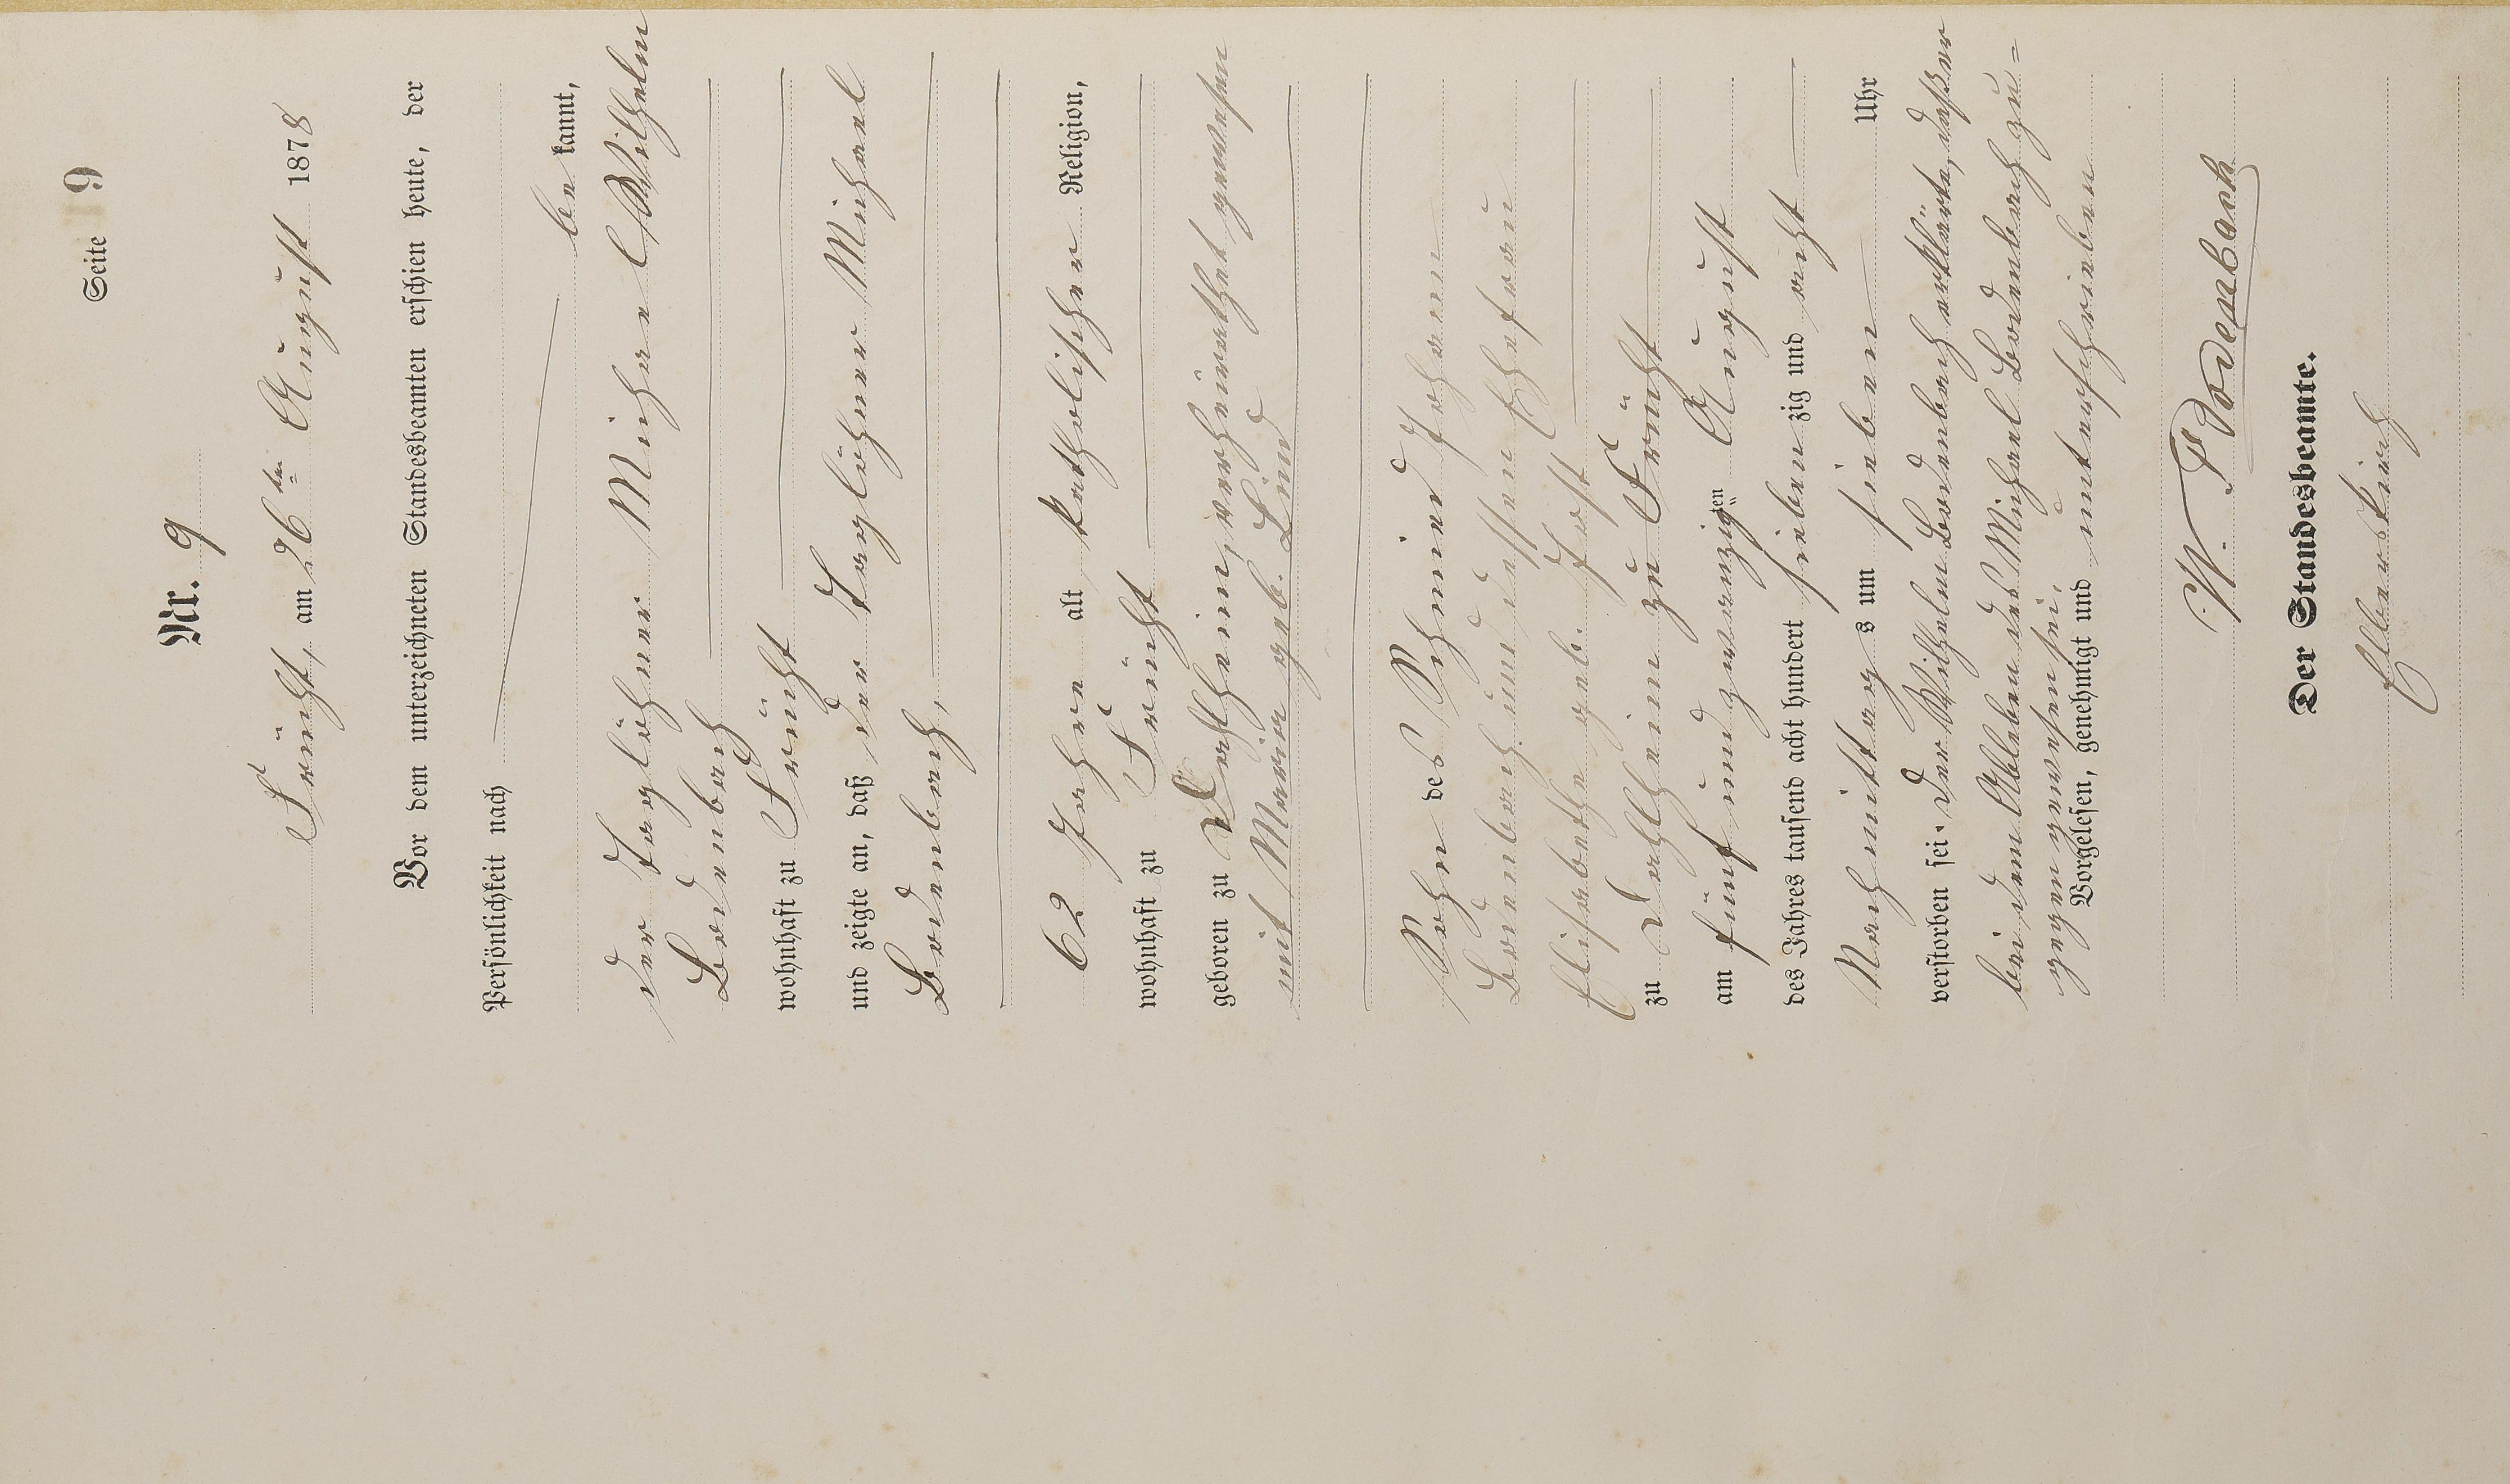 Seite 9
Nr. 9
Frücht, am 26ten August 1878
Vor dem unterzeichneten Standesbeamten erschien heute, der
Persönlichkeit nach
be kannt,
der Taglöhner Michael Wilhelm
Bodenbach
wohnhaft zu Frücht
und zeigte an, daß der Taglöhner Michael
Bodenbach,
62 Jahre alt katholischer Religion,
wohnhaft zu Frücht
geboren zu Dachsheim, verheirathet gewesen
mit Maria geb. Lind
Sohn des Schmied Johann
Bodenbach und dessen Ehefrau
Elisabetha geb. Jost
zu zu Frücht
am fünf und zwanzigten August
des Jahres tausend acht hundert siebenzig und acht
Nachmittags um sieben Uhr
verstorben sei. Der Wilhelm Bodenbach erklärte, daß er
bei dem Ableben des Michael Bodenbach zu=
gegen gewesen sei.
Vorgelesen, genehmigt und unterschrieben
W. Bodenbach
Der Standesbeamte.